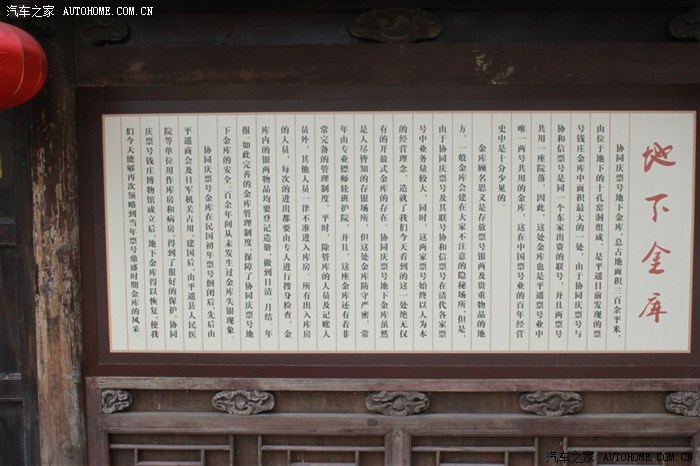 汽车之家 AUTOHOME.COM.CN
地下金库
协同庆票号地下金库，总占地面积二百余平米，
由位于地下的十孔窑洞组成，是平遥目前发现的票
号钱庄金库中面积最大的一处，由于协同庆票号与
协和信票号是同一个东家出资的联号，并且两票号
共用一座院落，因此，这处金库也是平遥票号业中
唯一两号共用的金库，这在中国票号业的百年经营
史中是十分少见的。
金库顾名思义是存放票号银两及贵重物品的地
方，一般金库会建在大家不注意的隐秘场所，但是，
由于协同庆票号及其联号协和信票号在清代各家票
号中业务量较大，同时，这两家票号始终以人为本
的经营理念，造就了我们今天看到的这一处绝无仅
有的开放式金库的存在。协同庆票号地下金库虽然
是人尽皆知的存银场所，但这处金库防守严密。常
年由专业镖师轮班护院，并且，这座金库还有着非
常完备的管理制度，平时，除管库的人员及记账人
员外，其他人员一律不准进入库房。所有出入库房
的人员，每次的进出都要由专人进行搜身检查，金
库内的银两物品均要登记造册，做到日清、月结、年
报。如此完善的金库管理制度，保障了协同庆票号地
下金库的安全，二百余年间从未发生过金库失银现象。
协同庆票号金库在民国初年票号倒闭后，先后由
平遥商会及日军机关占用，建国后，由平遥县人民医
院等单位用作库房和病房，得到了很好的保护。协同
庆票号钱庄博物馆成立后，地下金库得以恢复，使我
们今天能够再次领略到当年票号鼎盛时期金库的风采。
汽车之家 AUTOHOME.COM.CN